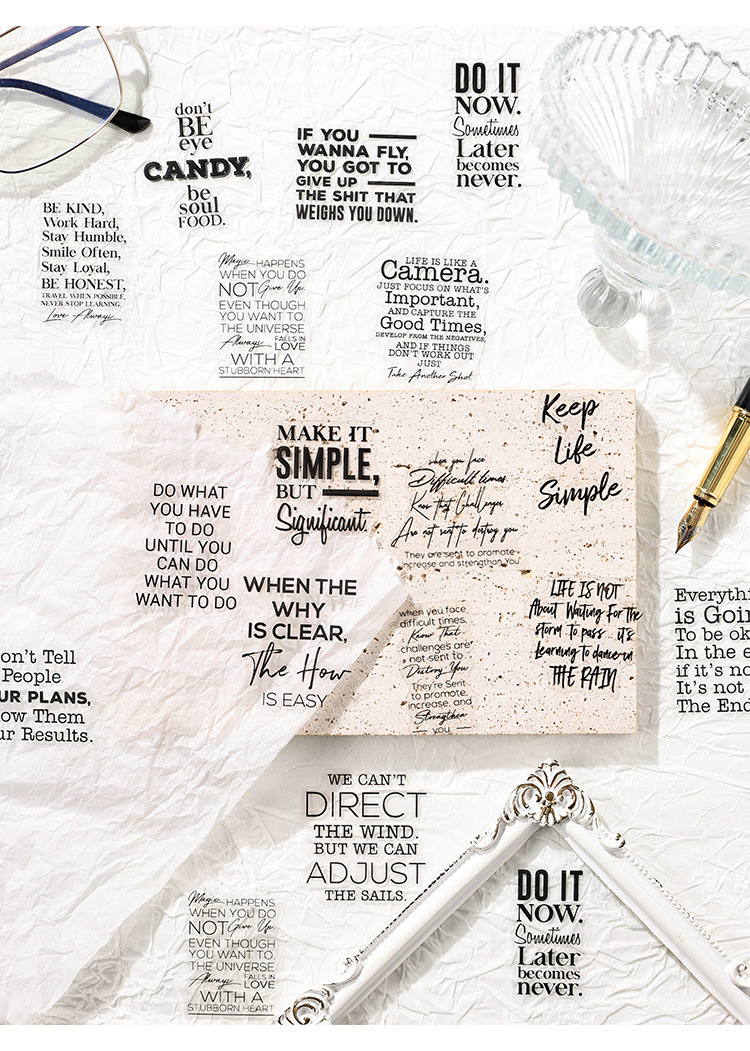 don't
BE
eye
CANDY,
be
soul
FOOD.
IF YOU
WANNA FLY,
YOU GOT TO
GIVE UP
THE SHIT THAT
WEIGHS YOU DOWN.
DO IT
NOW.
Sometimes
Later
becomes
never.
BE KIND,
Work Hard,
Stay Humble,
Smile Often,
Stay Loyal,
BE HONEST,
TRAVEL WHEN POSSIBLE,
NEVER STOP LEARNING.
Love Always
Magic HAPPENS
WHEN YOU DO
NOT Give Up
EVEN THOUGH
YOU WANT TO.
THE UNIVERSE
Always FALLS IN LOVE
WITH A
STUBBORN HEART
LIFE IS LIKE A
Camera.
JUST FOCUS ON WHAT'S
Important,
AND CAPTURE THE
Good Times,
DEVELOP FROM THE NEGATIVES,
AND IF THINGS
DON'T WORK OUT
JUST
Take Another Shot.
MAKE IT
SIMPLE,
BUT
Significant.
when you face
Difficult times
Know that Challenges
Are not sent to destroy you
They are sent to promote
increase and strengthen You
Keep
Life
Simple
DO WHAT
YOU HAVE
TO DO
UNTIL YOU
CAN DO
WHAT YOU
WANT TO DO
WHEN THE
WHY
IS CLEAR,
The How
IS EASY
when you face
difficult times,
Know That
challenges are
not sent to
Destroy You
They're Sent
to promote,
increase, and
Strengthen
you
LIFE IS NOT
About Waiting For the
storm To pass it's
Learning to dance in
THE RAIN
Everythi
is Goin
To be ok
In the e
if it's no
It's not
The End
on't Tell
People
UR PLANS,
ow Them
ur Results.
WE CAN'T
DIRECT
THE WIND.
BUT WE CAN
ADJUST
THE SAILS.
Magic HAPPENS
WHEN YOU DO
NOT Give Up
EVEN THOUGH
YOU WANT TO.
THE UNIVERSE
Always FALLS IN LOVE
WITH A
STUBBORN HEART
DO IT
NOW.
Sometimes
Later
becomes
never.